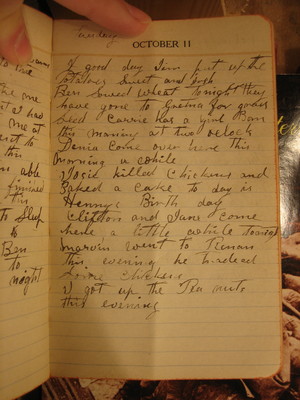 Tuesday
OCTOBER 11
A good day Jim put up the
Potatoes Sweet and Irish
Ben Sowed wheat tonight they
have gone to Gretna for
Seed Carrie has a girl Born
this morning at two oclock
Come over here this
morning a while
I Josie killed Chickens and
Baked a cake to day is
Henrys Birth day
Clifton and Jane Come
here a little while tonight
marvin went to
this evening he
Some chickens
I got up the Pea nuts
this evening
the me
at
this
able
finished
this
to Sleep
Ben
to
night